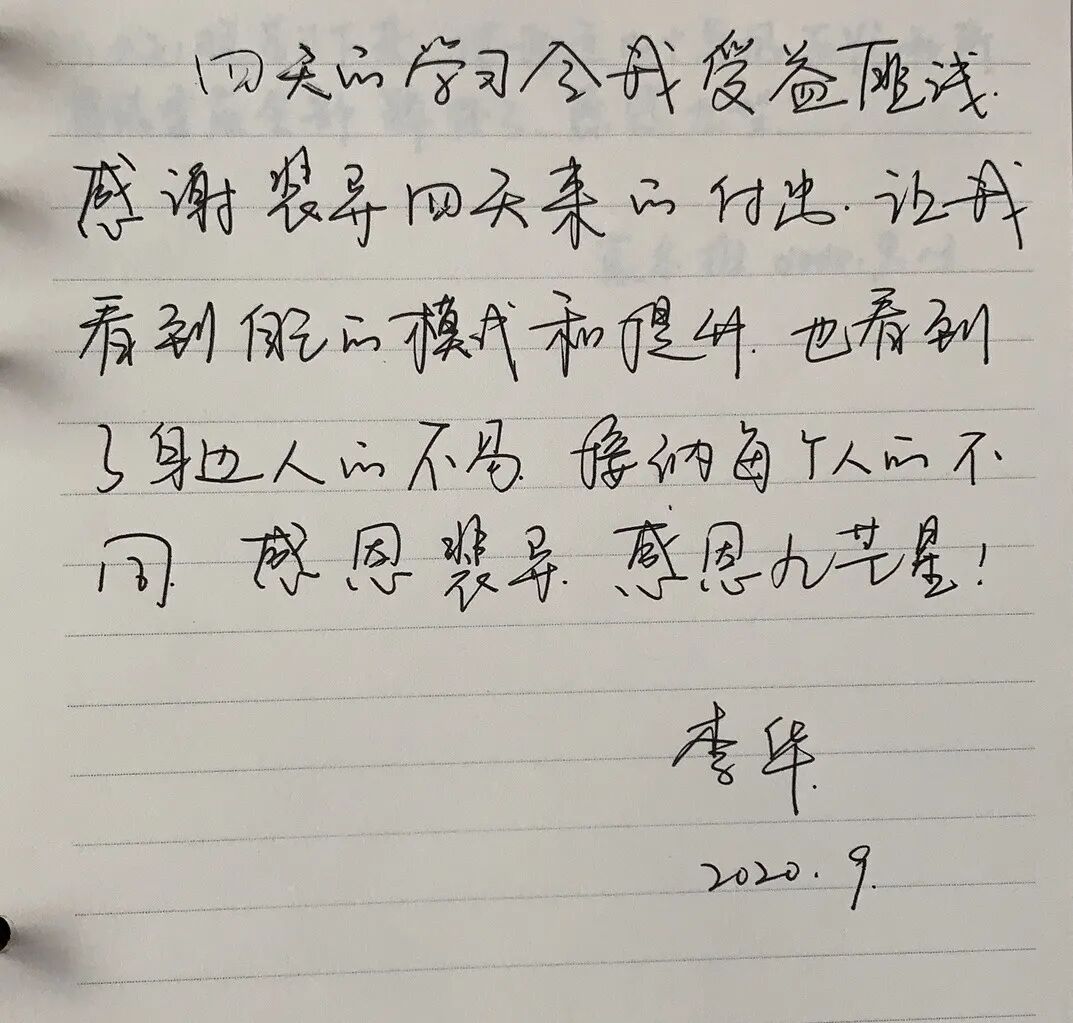 四天的学习令我受益匪浅.
感谢裴导四天来的付出.让我
看到自己的模式和提升.也看到
了身边人的不易.接纳每个人的不
同.感恩裴导.感恩九芒星!
李华.
2020.9.